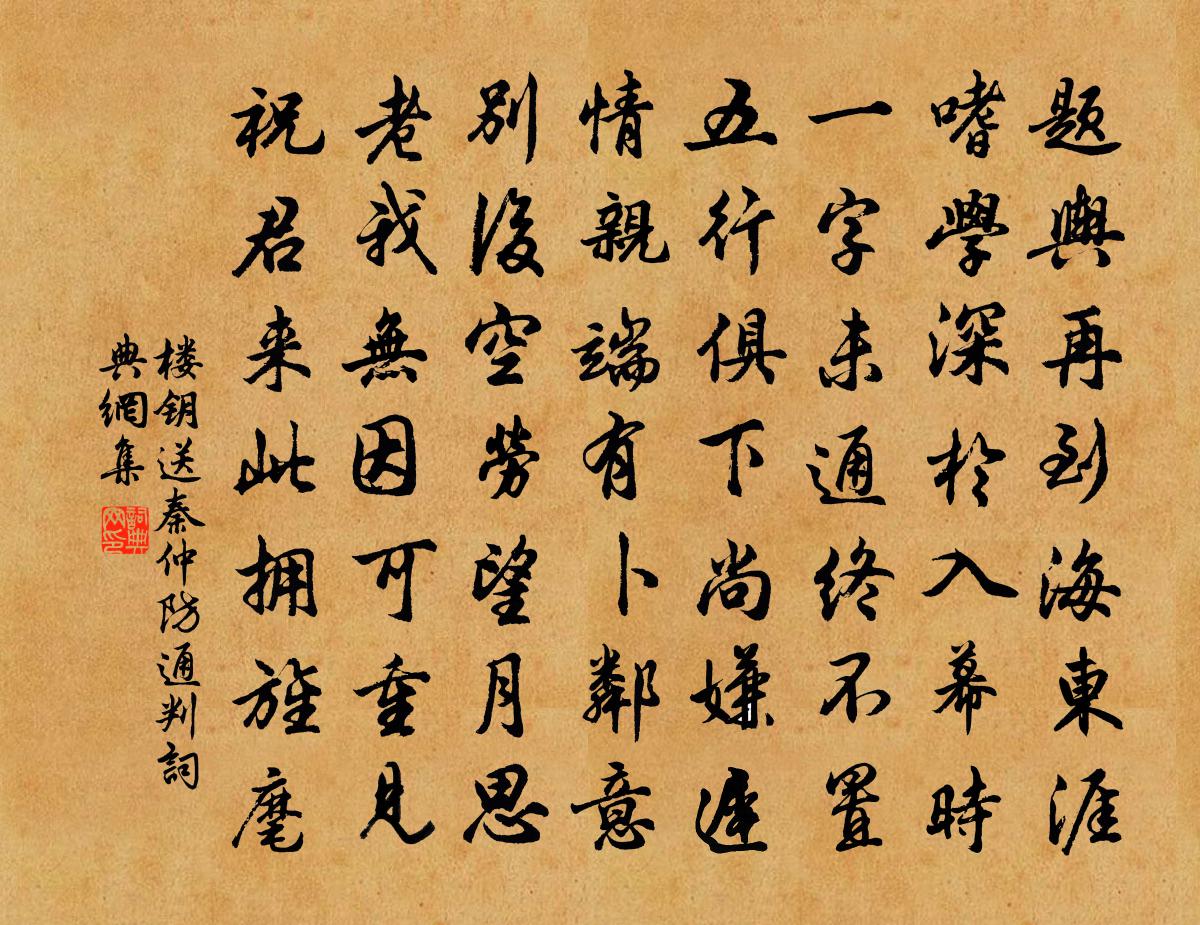 题輿再到海東涯
嗜學深於入幕時
一字未通終不置
五行俱下尚嫌遲
情親端有卜鄰意
別後空勞望月思
老我無因可重見
祝君来此拥旌麾
楼钥送秦仲防通判詞
典網集
詞典网印